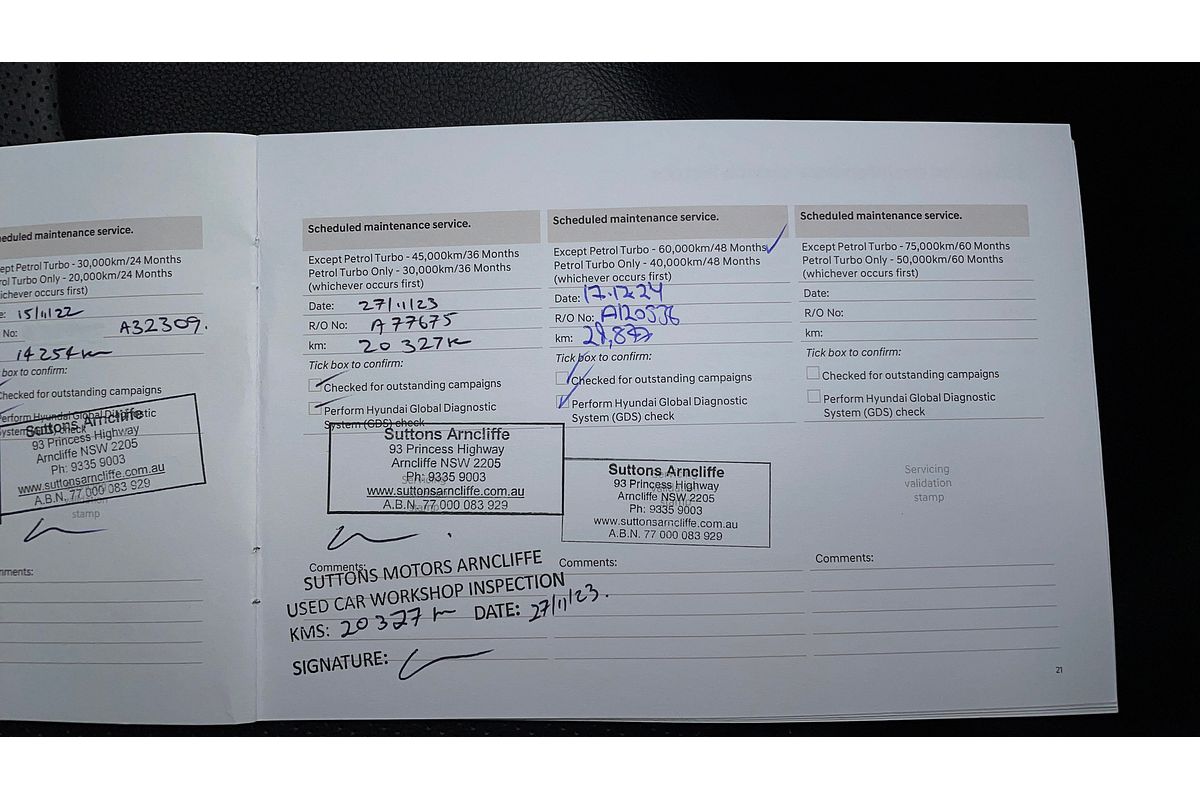 eduled maintenance service.
ept Petrol Turbo - 30,000km/24 Months
rol Turbo Only - 20,000km/24 Months
ichever occurs first)
e: 15/11/22
No: A32309.
14254 km
box to confirm:
Checked for outstanding campaigns
Perform Hyundai Global Diagnostic
System (GDS) check
Suttons Arncliffe
93 Princess Highway
Arncliffe NSW 2205
Ph: 9335 9003
www.suttonsarncliffe.com.au
A.B.N. 77 000 083 929
stamp
mments:
Scheduled maintenance service.
Except Petrol Turbo - 45,000km/36 Months
Petrol Turbo Only - 30,000km/36 Months
(whichever occurs first)
Date: 27/11/23
R/O No: A77675
km: 20 327 km
Tick box to confirm:
Checked for outstanding campaigns
Perform Hyundai Global Diagnostic
System (GDS) check
Suttons Arncliffe
93 Princess Highway
Arncliffe NSW 2205
Ph: 9335 9003
www.suttonsarncliffe.com.au
A.B.N. 77 000 083 929
Comments:
SUTTONS MOTORS ARNCLIFFE
USED CAR WORKSHOP INSPECTION
KMS: 20327 km DATE: 27/11/23.
SIGNATURE:
Scheduled maintenance service.
Except Petrol Turbo - 60,000km/48 Months
Petrol Turbo Only - 40,000km/48 Months
(whichever occurs first)
Date: 17.12.24
R/O No: A120536
km: 28,877
Tick box to confirm:
Checked for outstanding campaigns
Perform Hyundai Global Diagnostic
System (GDS) check
Suttons Arncliffe
93 Princess Highway
Arncliffe NSW 2205
Ph: 9335 9003
www.suttonsarncliffe.com.au
A.B.N. 77 000 083 929
Comments:
Scheduled maintenance service.
Except Petrol Turbo - 75,000km/60 Months
Petrol Turbo Only - 50,000km/60 Months
(whichever occurs first)
Date:
R/O No:
km:
Tick box to confirm:
Checked for outstanding campaigns
Perform Hyundai Global Diagnostic
System (GDS) check
Servicing
validation
stamp
Comments:
21